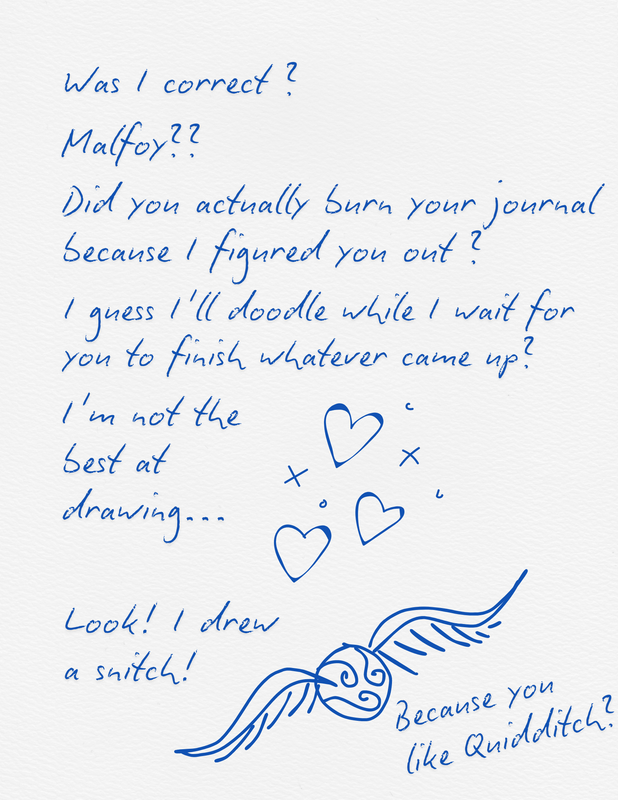 Was I correct?
Malfoy??
Did you actually burn your journal
because I figured you out?
I guess I'll doodle while I wait for
you to finish whatever came up?
I'm not the
best at
drawing...
Look! I drew
a snitch!
Because you
like Quidditch?